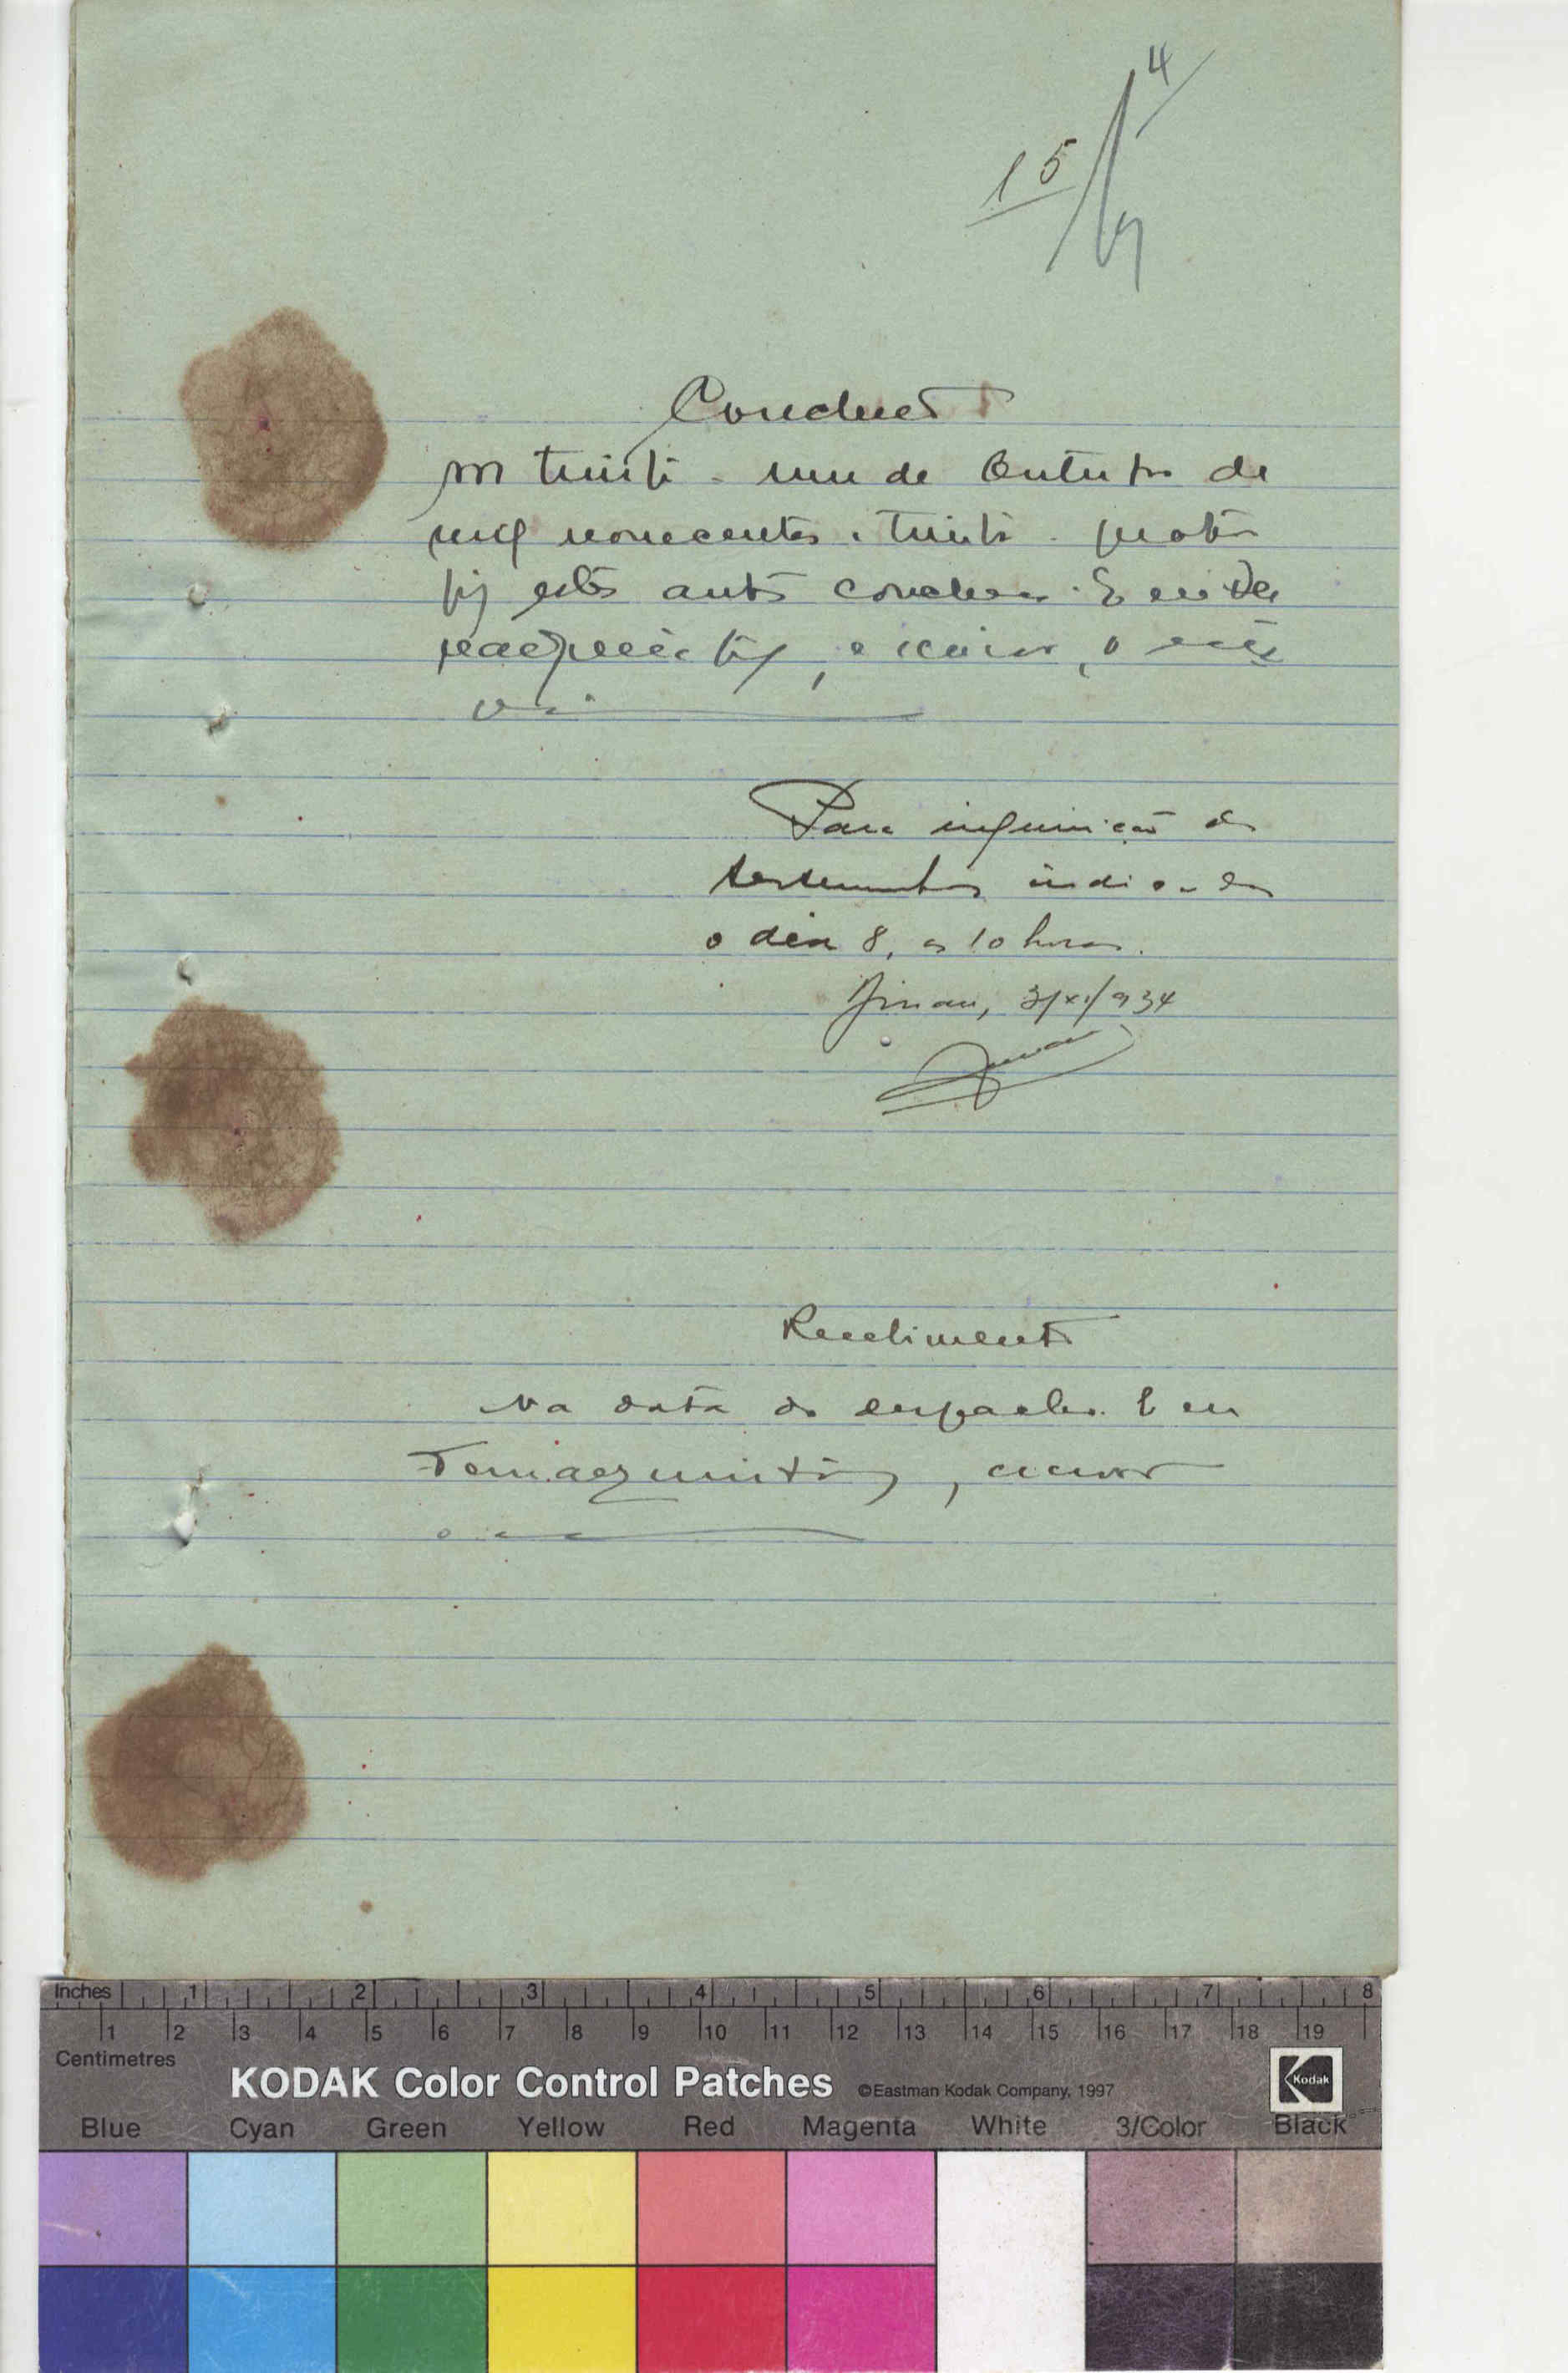 4
15
Em trinta e um de Outubro de
mil novecentos e trinta e quatro
fiz estes autos conclusos. E eu
escrivão, o
Para inquirição de
testemunhas indico
o dia 8, as 10 horas.
3/XI/934
Recebimento
Na data do despacho. E eu
escrivão
Inches 1 2 3 4 5 6 7 8
1 2 3 4 5 6 7 8 9 10 11 12 13 14 15 16 17 18 19
Centimetres
KODAK Color Control Patches ©Eastman Kodak Company, 1997 Kodak
Blue Cyan Green Yellow Red Magenta White 3/Color Black